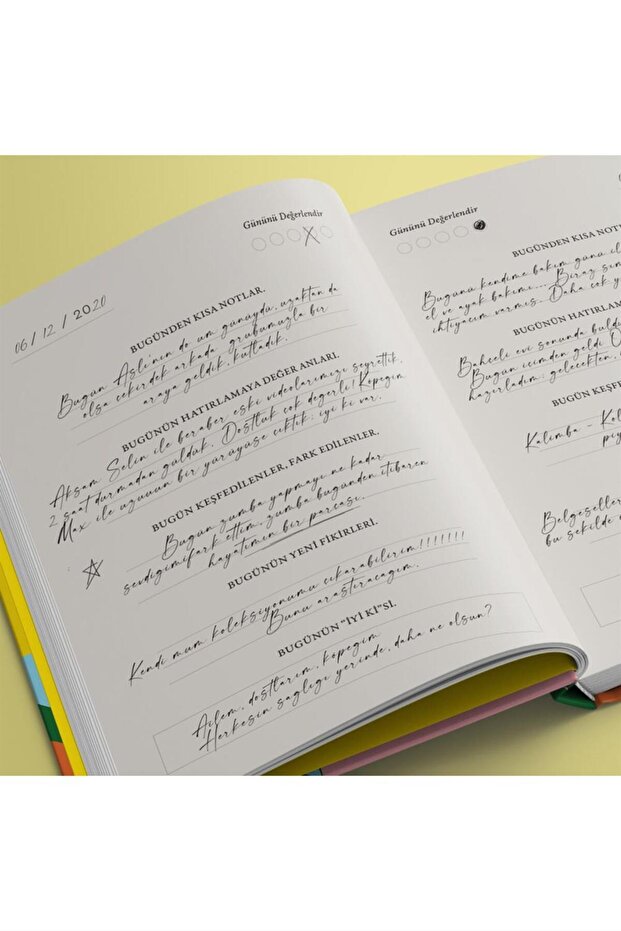 Gününü Değerlendir
06 / 12 / 2020
BUGÜNDEN KISA NOTLAR.
Bugün Aslı'nın do um günüydü, uzaktan da
olsa çekirdek arkada grubumuzla bir
araya geldik, kutladık.
BUGÜNÜN HATIRLAMAYA DEĞER ANLARI.
Akşam Selin ile beraber eski videolarımızı seyrettik,
2 saat durmadan güldük. Dostluk çok değerli! Köpeğim
Max ile uzuuun bir yürüyüşe çıktık; iyi ki var.
BUGÜN KEŞFEDİLENLER, FARK EDİLENLER.
Bugün zumba yapmayı ne kadar
sevdiğimi fark ettim, zumba bugünden itibaren
hayatımın bir parçası.
BUGÜNÜN YENİ FİKİRLERİ.
Kendi mum koleksiyonumu çıkarabilirim!!!!!!!
Bunu araştıracağım.
BUGÜNÜN "İYİ Kİ"Sİ.
Ailem, dostlarım, köpeğim
Herkesin sağlığı yerinde, daha ne olsun?
Gününü Değerlendir
BUGÜNDEN KISA NOTLAR
Bugünü kendime bakım günü il
el ve ayak bakımı... Biraz
ihtiyacım varmış. Daha çok
BUGÜNÜN HATIRLAM
Bahçeli evi sonunda buldu
Bugün içimden geldi
hazırladım; gelecekten,
BUGÜN KEŞFE
Kalimba - Kal
piy
Belgeseller
bu şekilde